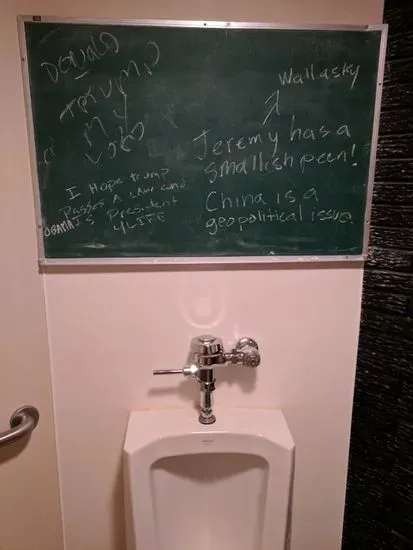 Donald
Trump
my
vote
I Hope trump
Passes A Law and
OBAMA IS President
4LIFE
Wallasky
Jeremy has a
smallish peen!
China is a
geopolitical issue